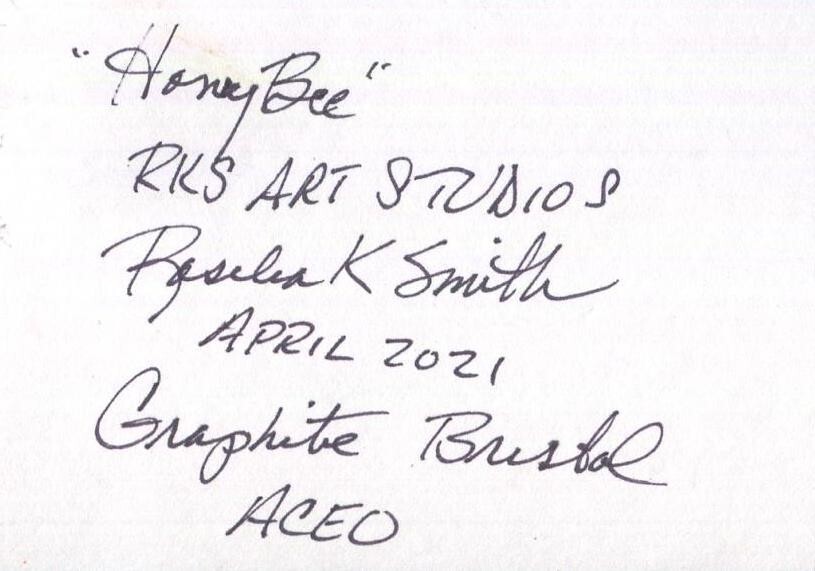 "Honey Bee"
RKS ART STUDIOS
Roselia K Smith
APRIL 2021
Graphite Bristol
ACEO